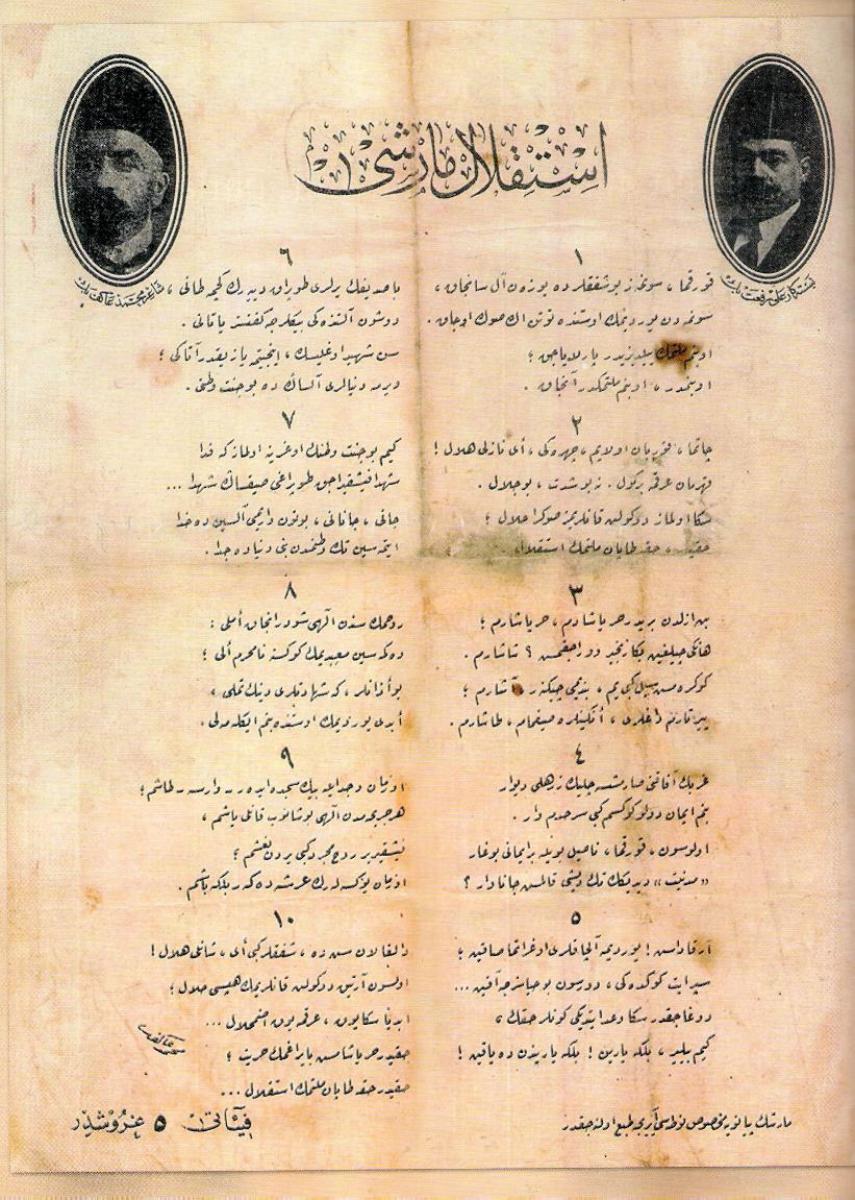 استقلال مارشی
شاعر محمد عاکف بك
بسته‌کار علی رفعت بك
١
قورقما، سونمز بو شفقلرده یوزن آل سانجاق،
سونمه‌دن یوردیمك اوستنده توتن اڭ صوك اوجاق.
او بنم ملتمك ییلدیزیدر پارلایاجق؛
او بنمدر، او بنم ملتمكدر آنجاق.
٢
چاتما، قوربان اولایم، چهره‌ڭی، أی نازلی هلال!
قهرمان عرقمه برکول. نه بو شدت، بو جلال.
سڭا اولماز دوکولن قانلریمز صوڭرا حلال؛
حقیدر، حقه طاپان ملتمك استقلال.
٣
بن ازلدن بریدر حر یاشادم، حر یاشارم؛
هانکی چیلغین بڭا زنجیر ووراجقمش؟ شاشارم.
کوکره‌مش سیل کبی یم، بندیمی چیکنر، آشارم؛
ییرتارم داغلری، أنکینلره صیغمام، طاشارم.
٤
غربك آفاقنی صارمشسه چلیك زرهلی دیوار
بنم ایمان دولو کوکسم کبی سرحدم وار.
اولوسون، قورقما، ناصیل بویله بر ایمانی بوغار
«مدنیت» دیدیکڭ تك دیشی قالمش جاناوار؟
٥
آرقاداش! یوردیمه آلچاقلری اوغراتما صاقین؛
سپر ایت کوکده‌ڭی، دورسون بو حیاسزجه آقین...
دوغاجقدر سڭا وعد ایتدیکی کونلر حقك،
کیم بیلیر، بلکه یارین! بلکه یاریندن ده یاقین!
٦
باصدیغڭ یرلری طوپراق دییه‌رك کچمه طانی،
دوشون آلتنده‌کی بیکلرجه کفنسز یاتانی.
سن شهید اوغلیسڭ، اینجیتمه یازیقدر آتاڭی؛
ویرمه دنیالری آلساڭ ده بو جنت وطنی.
٧
کیم بو جنت وطنڭ اوغرینه اولماز که فدا
شهدا فیشقیراجق طوپراغی صیقساڭ شهدا...
جانی، جانانی، بوتون واریمی آلسین ده خدا
ایتمه‌سین تك وطنمدن بنی دنیاده جدا.
٨
روحمك سندن الهی شودر آنجاق أملی:
دکمه‌سین معبدیمك کوکسنه نامحرم ألی؛
بو أذانلر، که شهادتلری دینك تملی،
أبدی یوردیمك اوستنده بنم ایکله‌ملی.
٩
او زمان وجدایله بیك سجده ایدر - وارسه - طاشم؛
هر جریحه‌مدن الهی بوشانوب قانلی یاشم،
فیشقیریر روح مجرد کبی یردن نعشم؛
او زمان یوکسه‌له‌رك عرشه ده‌کر بلکه باشم.
١٠
دالغالان سن ده، شفقلر کبی أی، شانلی هلال!
اولسون آرتیق دوکولن قانلریمك هپسی حلال؛
ابدیا سڭا یوق، عرقمه یوق اضمحلال...
حقیدر حر یاشامش بایراغمك حریت؛
حقیدر حقه طاپان ملتمك استقلال...
محمد عاکف
مارشك پیانویه مخصوص نوطه‌سی آیریجه طبع اولنه‌جقدر
فیئاتی ٥ غروشدر